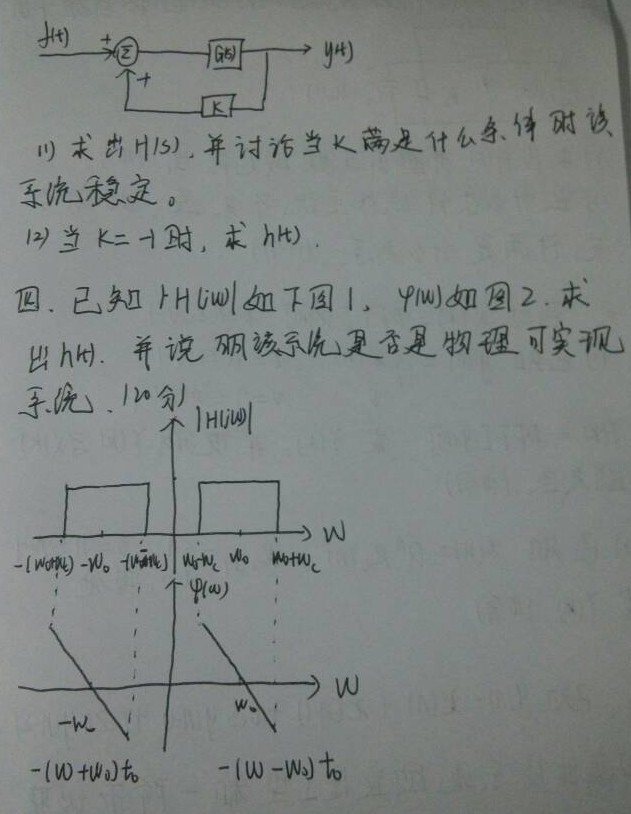 f(t) + Σ G(s) y(t)
+ K
(1) 求出H(s),并讨论当K满足什么条件时该
系统稳定。
(2) 当K=-1时,求h(t).
四、已知|H(jw)|如下图1,φ(w)如图2.求
出h(t).并说明该系统是否是物理可实现
系统.(20分)
|H(jw)|
W
-(w₀+wc) -w₀ w₀-wc w₀ w₀+wc
φ(w)
W
-w₀ w₀
-(w+w₀)t₀ -(w-w₀)t₀